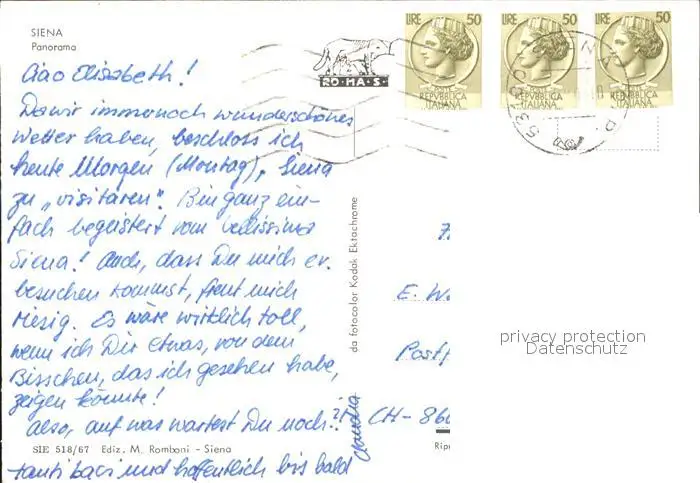 SIENA
Panorama
Ciao Elisabeth!
Da wir immernoch wunderschönes
Wetter haben, beschloss ich
heute Morgen (Montag), Siena
zu „visitaren". Bin ganz ein-
fach begeistert vom bellissima
Siena! Auch, dass Du mich ev.
besuchen kommst, freut mich
riesig. Es wäre wirklich toll,
wenn ich Dir etwas, von dem
Bisschen, das ich gesehen habe,
zeigen könnte!
Also, auf was wartest Du noch?!
SIE 518/67 Ediz. M. Romboni - Siena
tanti baci und hoffentlich bis bald
Claudia
da fotocolor Kodak Ektachrome
RO·MA·S·
LIRE 50
REPVBBLICA
ITALIANA
LIRE 50
REPVBBLICA
ITALIANA
LIRE 50
REPVBBLICA
ITALIANA
E. W
Postf
CH-860
Ripr
privacy protection
Datenschutz